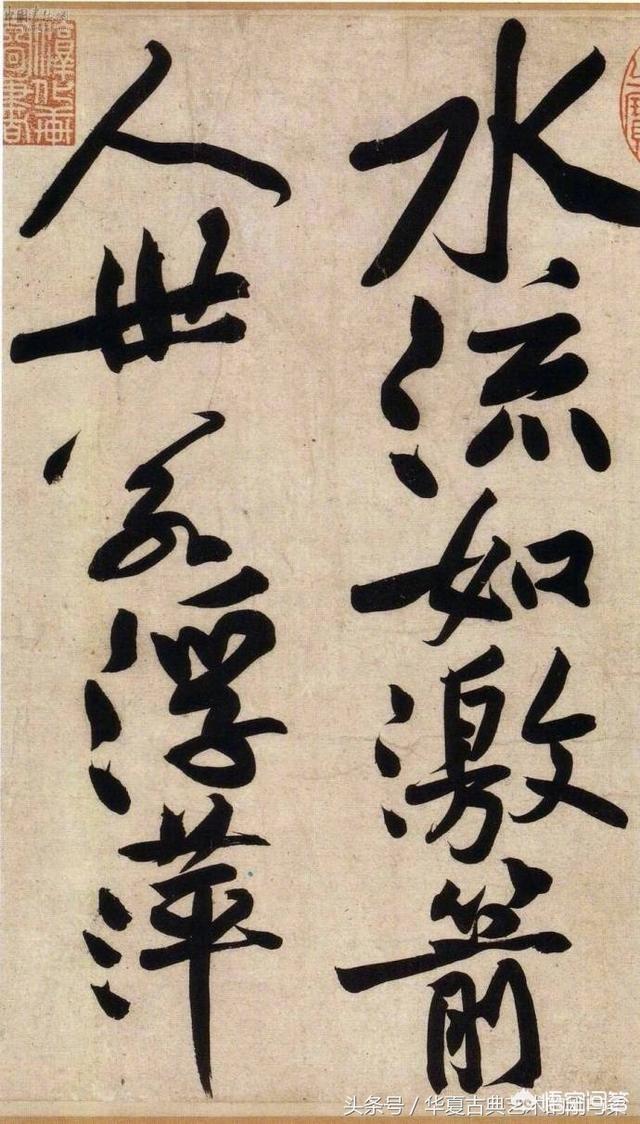 水流如激箭
人世若浮萍
头条号 / 华夏古典艺术
悟空问答